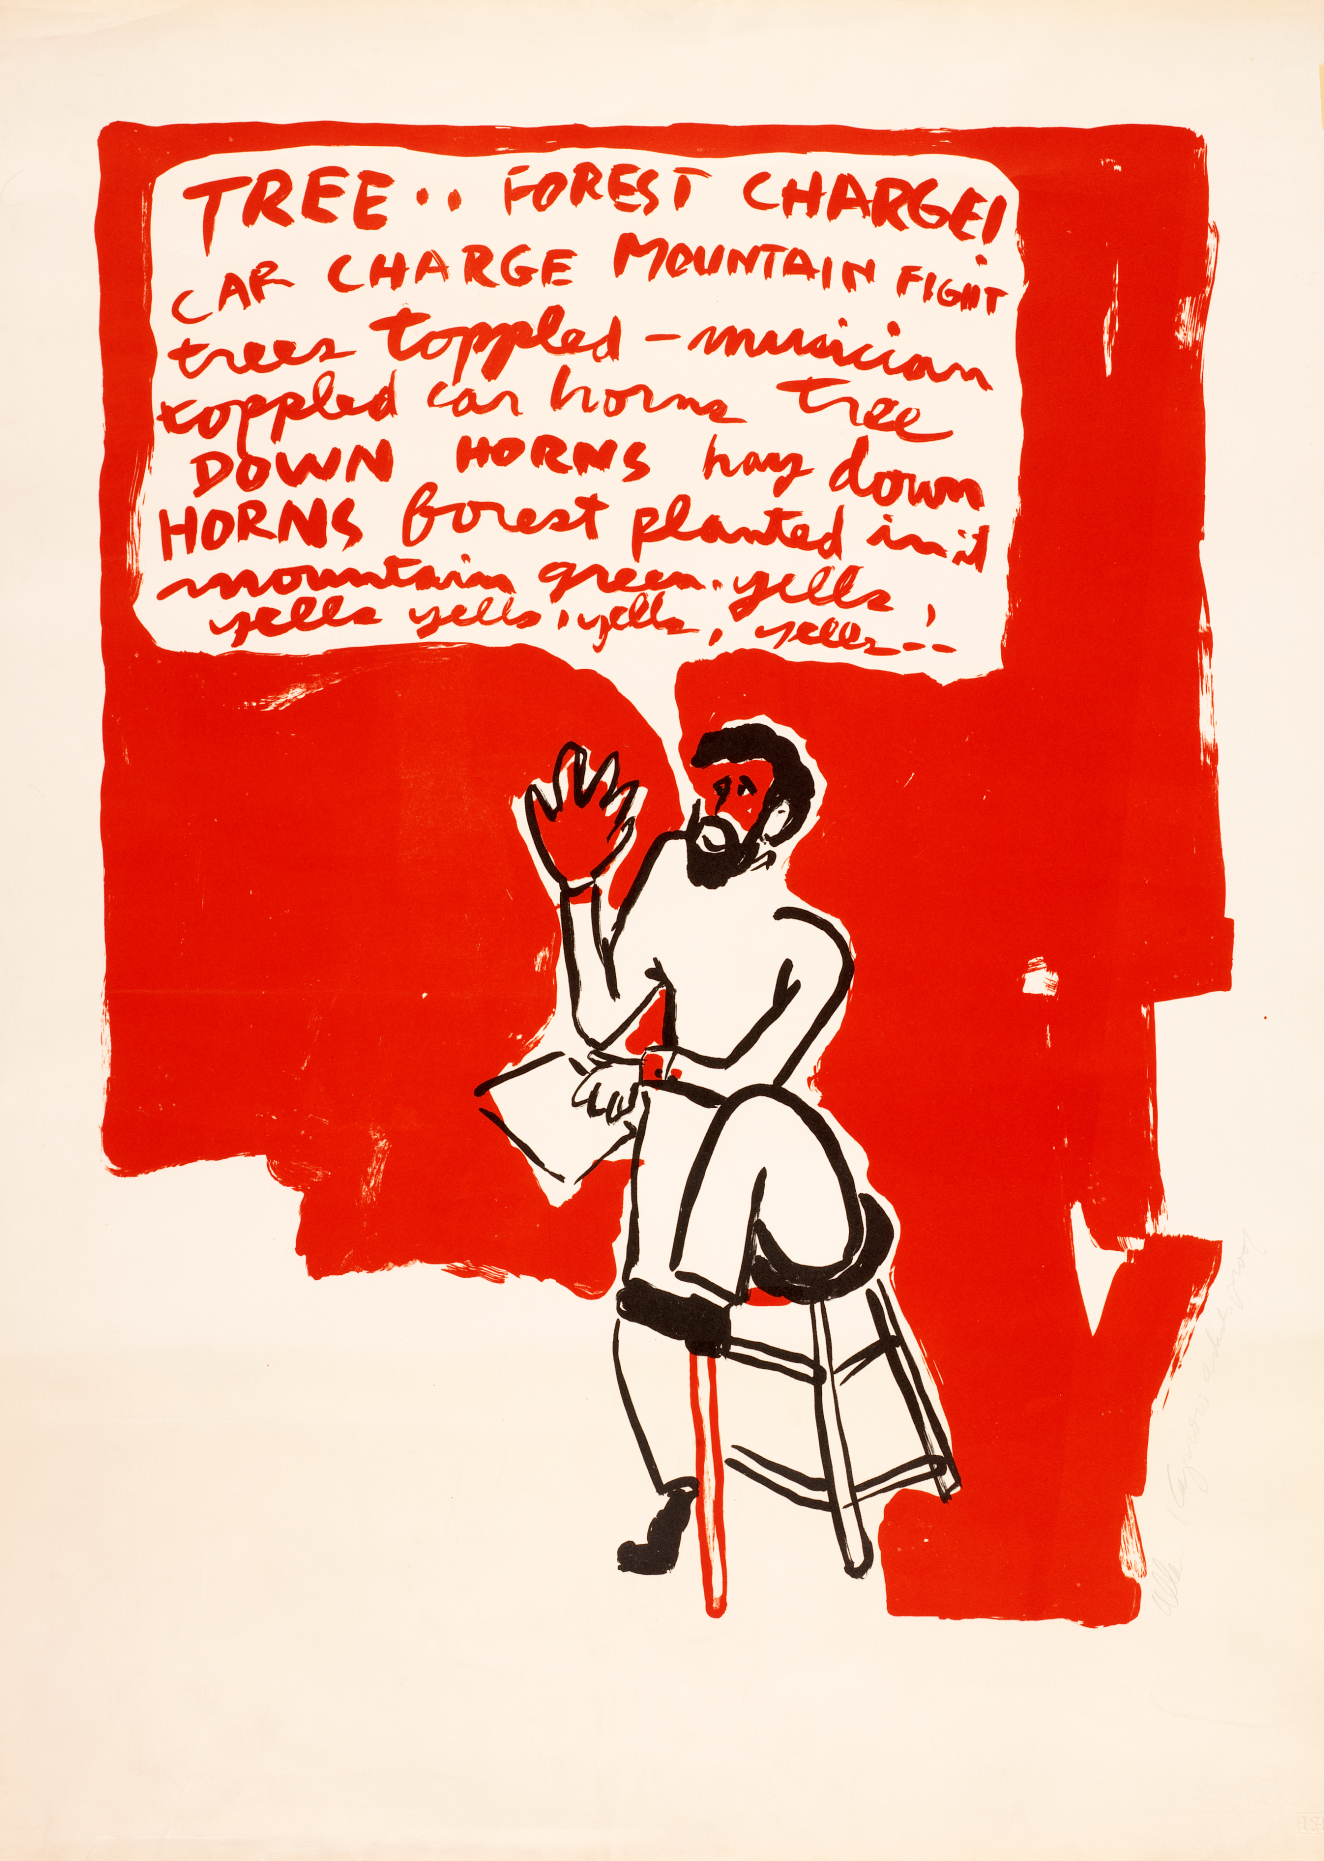 TREE.. FOREST CHARGE!
CAR CHARGE MOUNTAIN FIGHT
trees toppled - musician
toppled car horns tree
DOWN HORNS hay down
HORNS forest planted in it
mountain green. yells,
yells yells, yells, yells--
Alla artist's proof